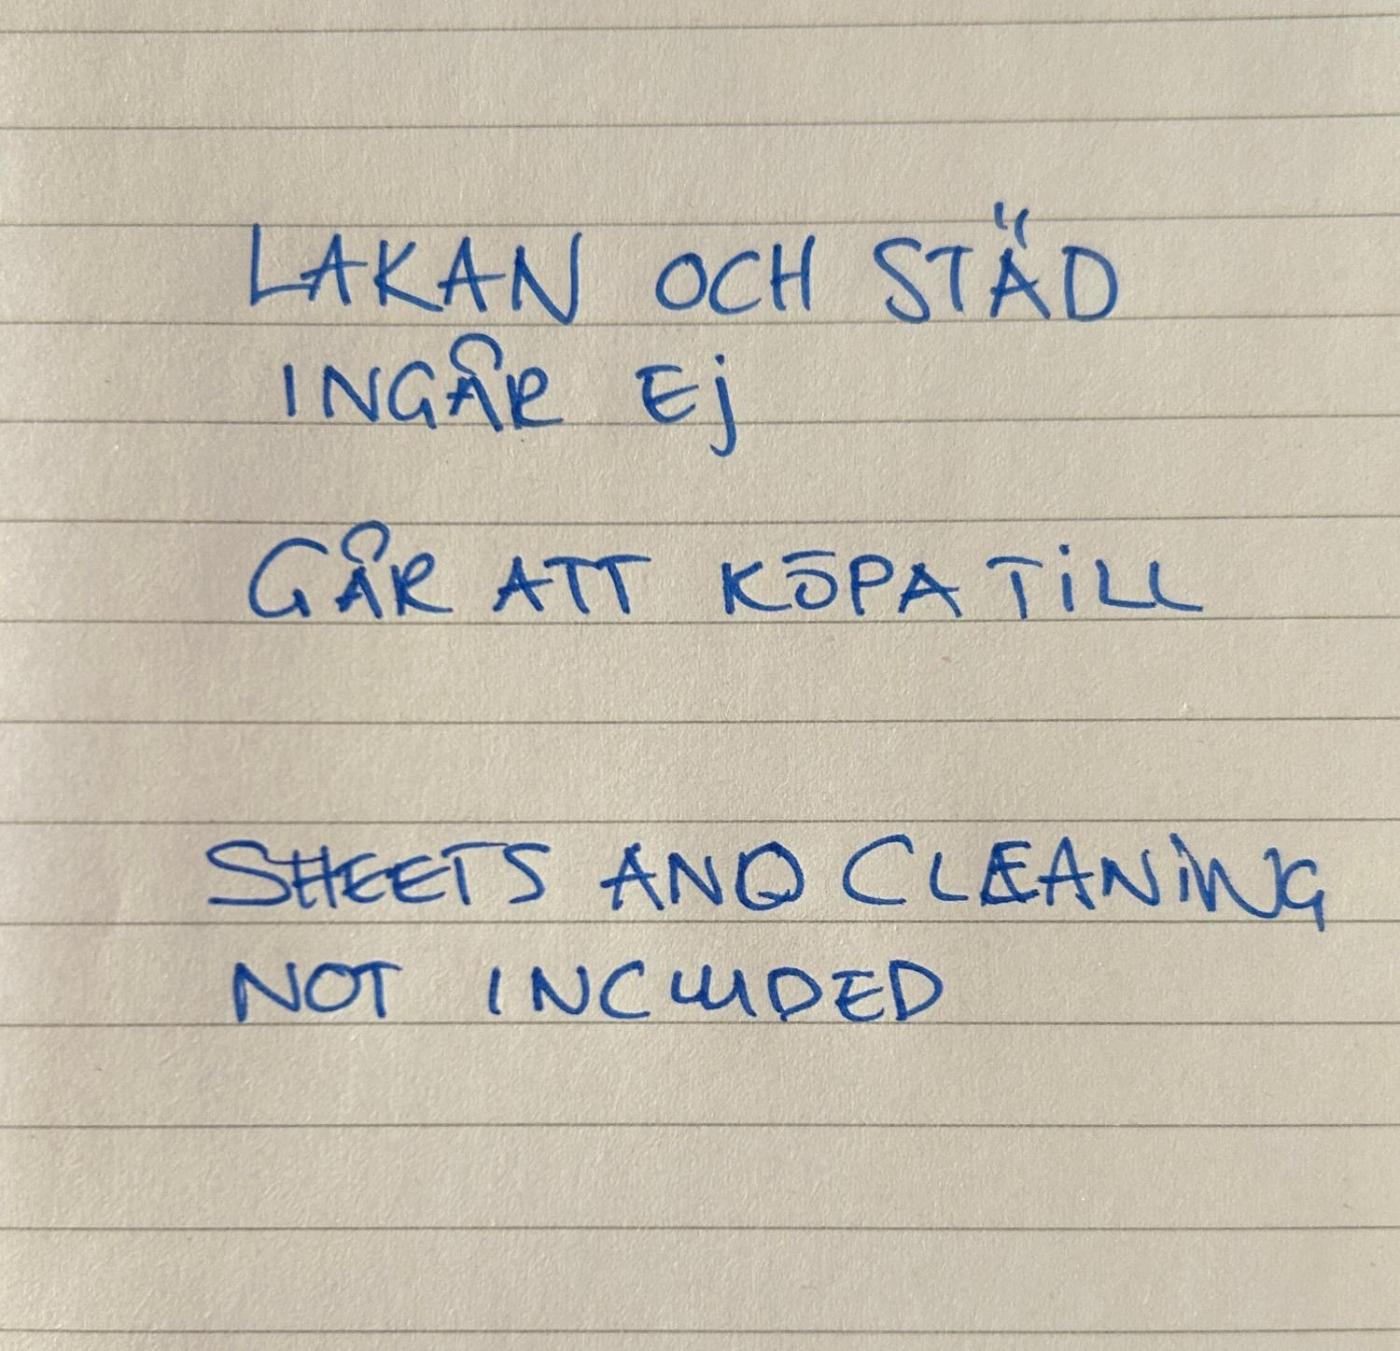 LAKAN OCH STÄD
INGÅR Ej
GÅR ATT KÖPA TILL
SHEETS AND CLEANING
NOT INCLUDED